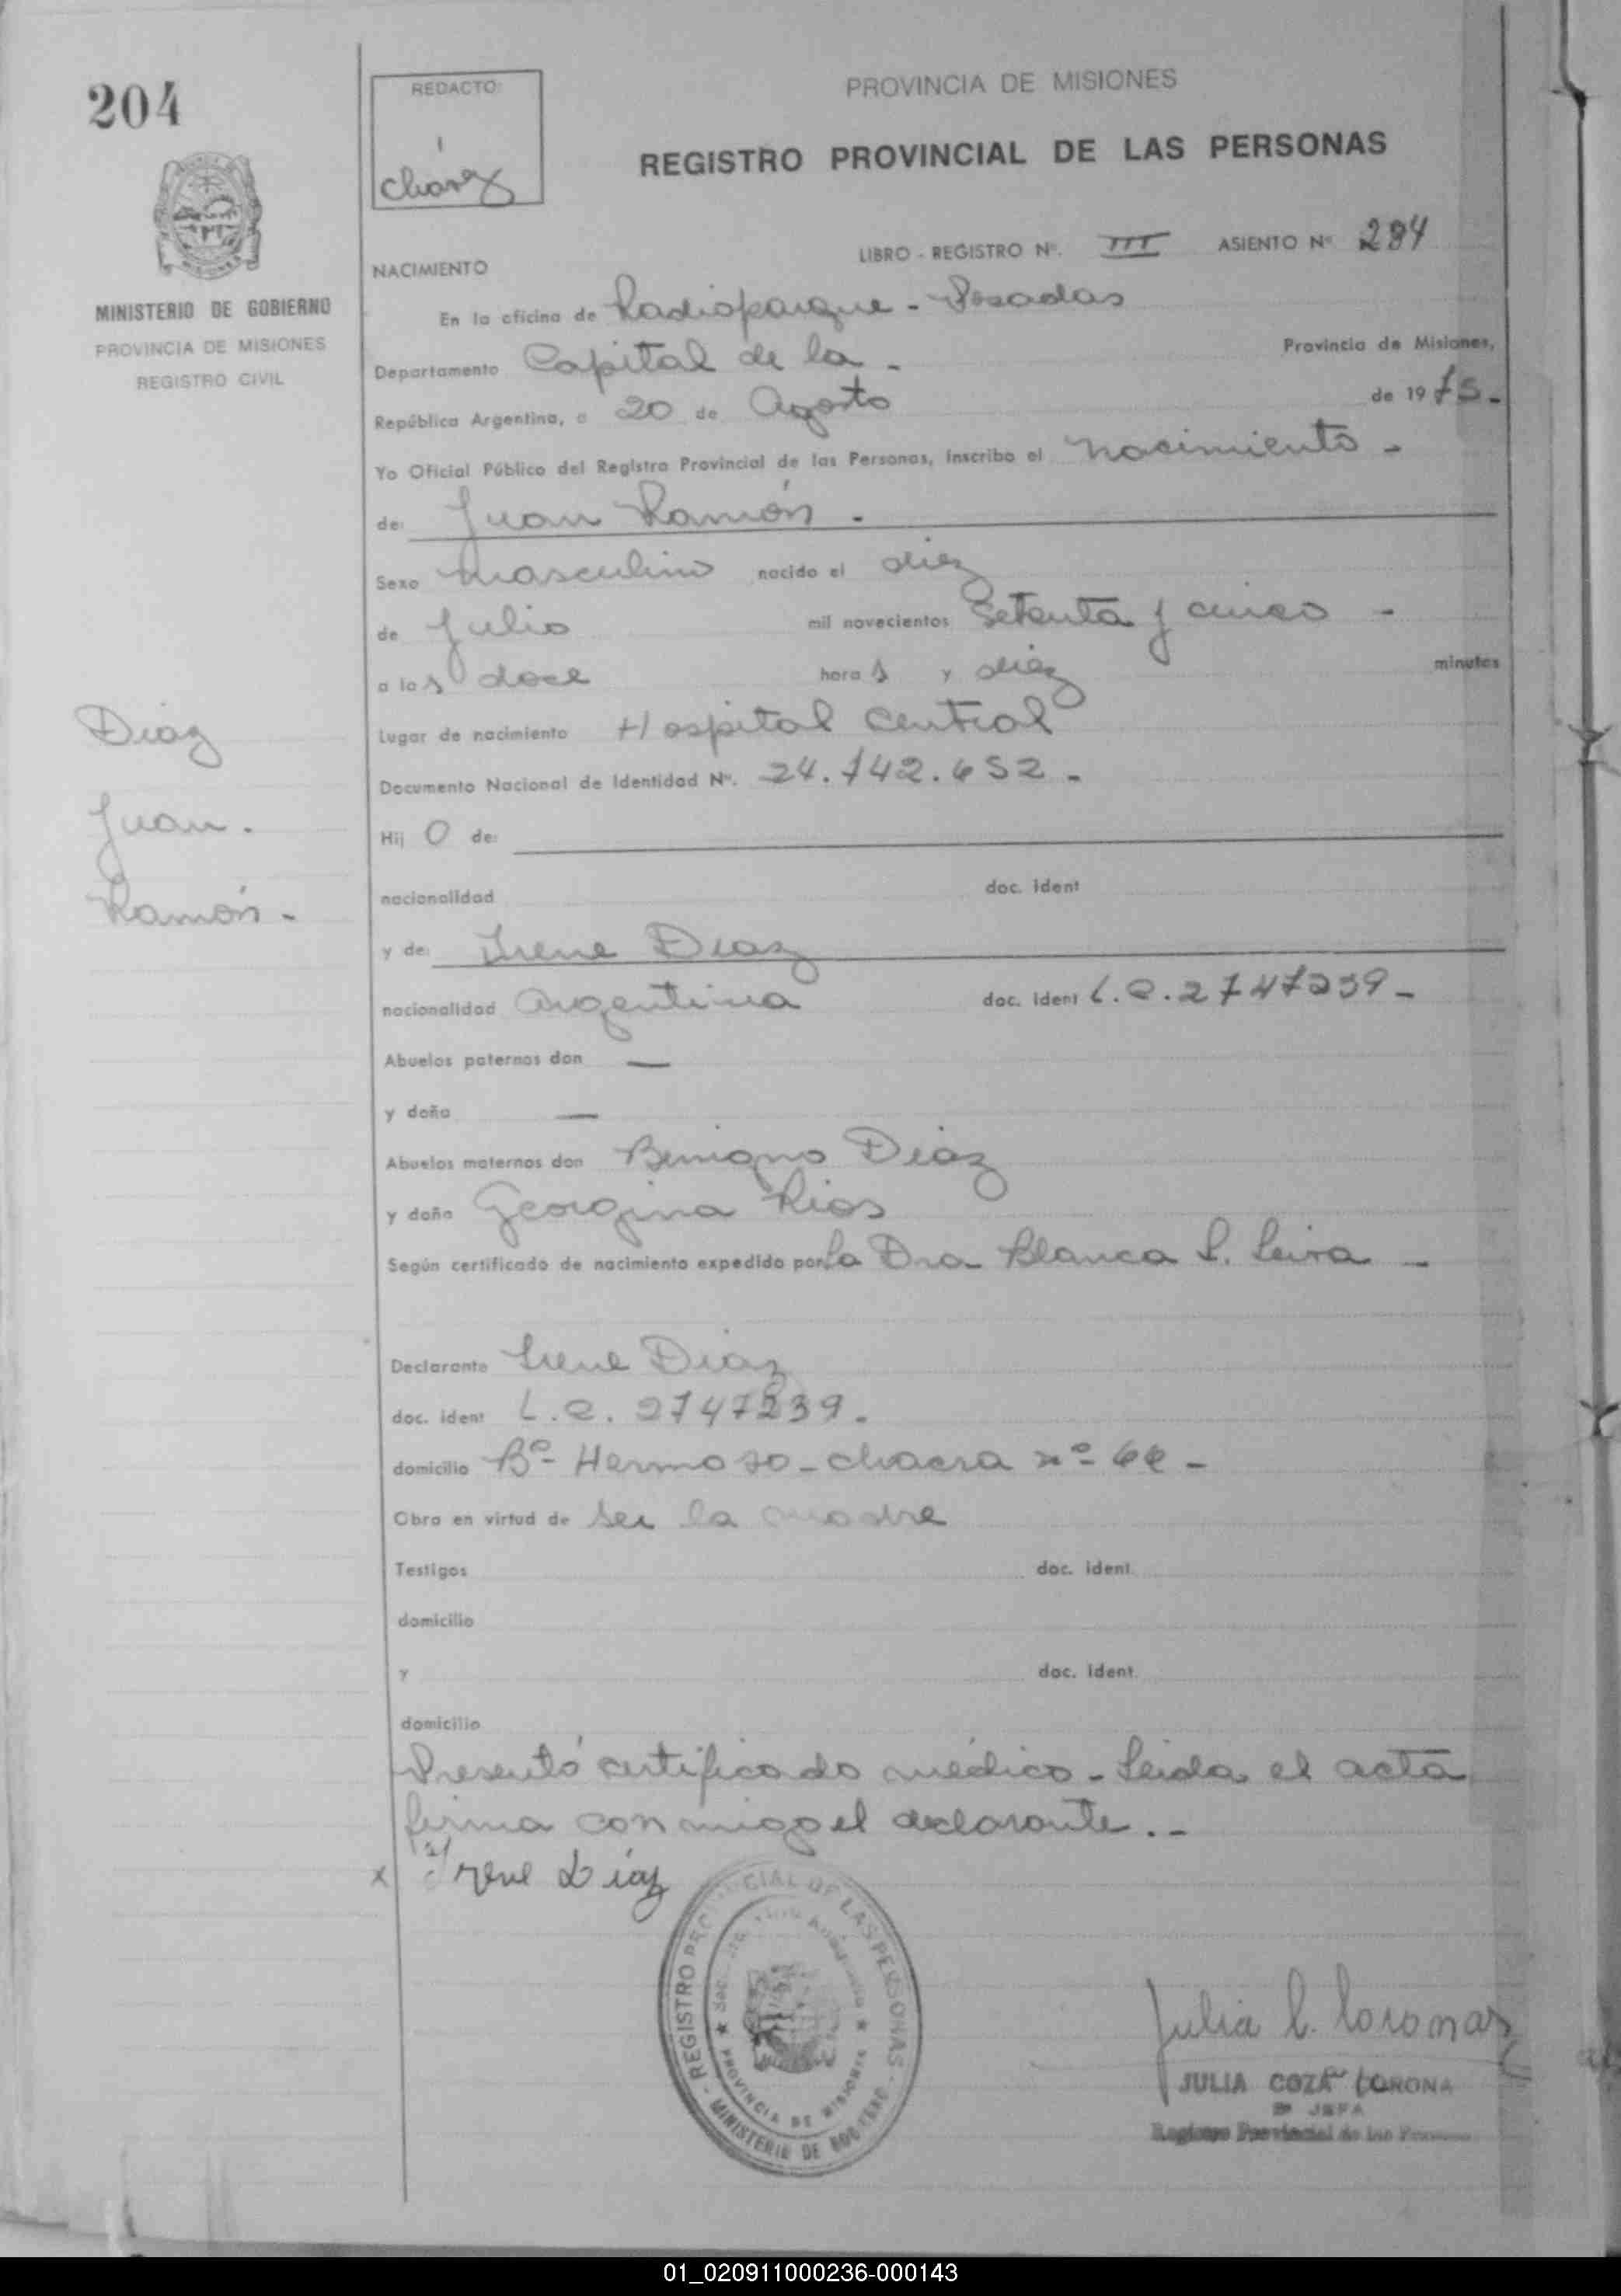 204
REDACTO:
Chavez
PROVINCIA DE MISIONES
REGISTRO PROVINCIAL DE LAS PERSONAS
LIBRO - REGISTRO Nº. III ASIENTO Nº 294
NACIMIENTO
MINISTERIO DE GOBIERNO
PROVINCIA DE MISIONES
REGISTRO CIVIL
En la oficina de Radioparque - Posadas
Departamento Capital de la - Provincia de Misiones,
República Argentina, a 20 de Agosto de 1975.-
Yo Oficial Público del Registro Provincial de las Personas, inscribo el nacimiento -
de: Juan Ramón -
Sexo masculino nacido el diez
de Julio mil novecientos Setenta y cinco -
a las doce horas y diez minutos
Lugar de nacimiento Hospital Central
Documento Nacional de Identidad Nº. 24.742.652 -
Hijo de:
nacionalidad doc. ident
y de: Irene Diaz
nacionalidad Argentina doc. ident L.C. 2747239 -
Abuelos paternos don —
y doña —
Abuelos maternos don Benigno Diaz
y doña Georgina Rios
Según certificado de nacimiento expedido por La Dra Blanca L. Leiva -
Declarante Irene Diaz
doc. ident L.C. 2747239.
domicilio Bº Hermoso - chacra nº
Obra en virtud de ser la madre
Testigos doc. ident.
domicilio
y doc. ident.
domicilio
Presentó certificado médico - Leida el acta
firma conmigo el declarante.-
x Irene Díaz
Diaz
Juan.
Ramón -
REGISTRO PROVINCIAL DE LAS PERSONAS
PROVINCIA DE MISIONES
MINISTERIO DE GOBIERNO
Julia C. Coronas
JULIA COZA CORONA
JEFA
Registro Provincial de las Personas
01_020911000236-000143